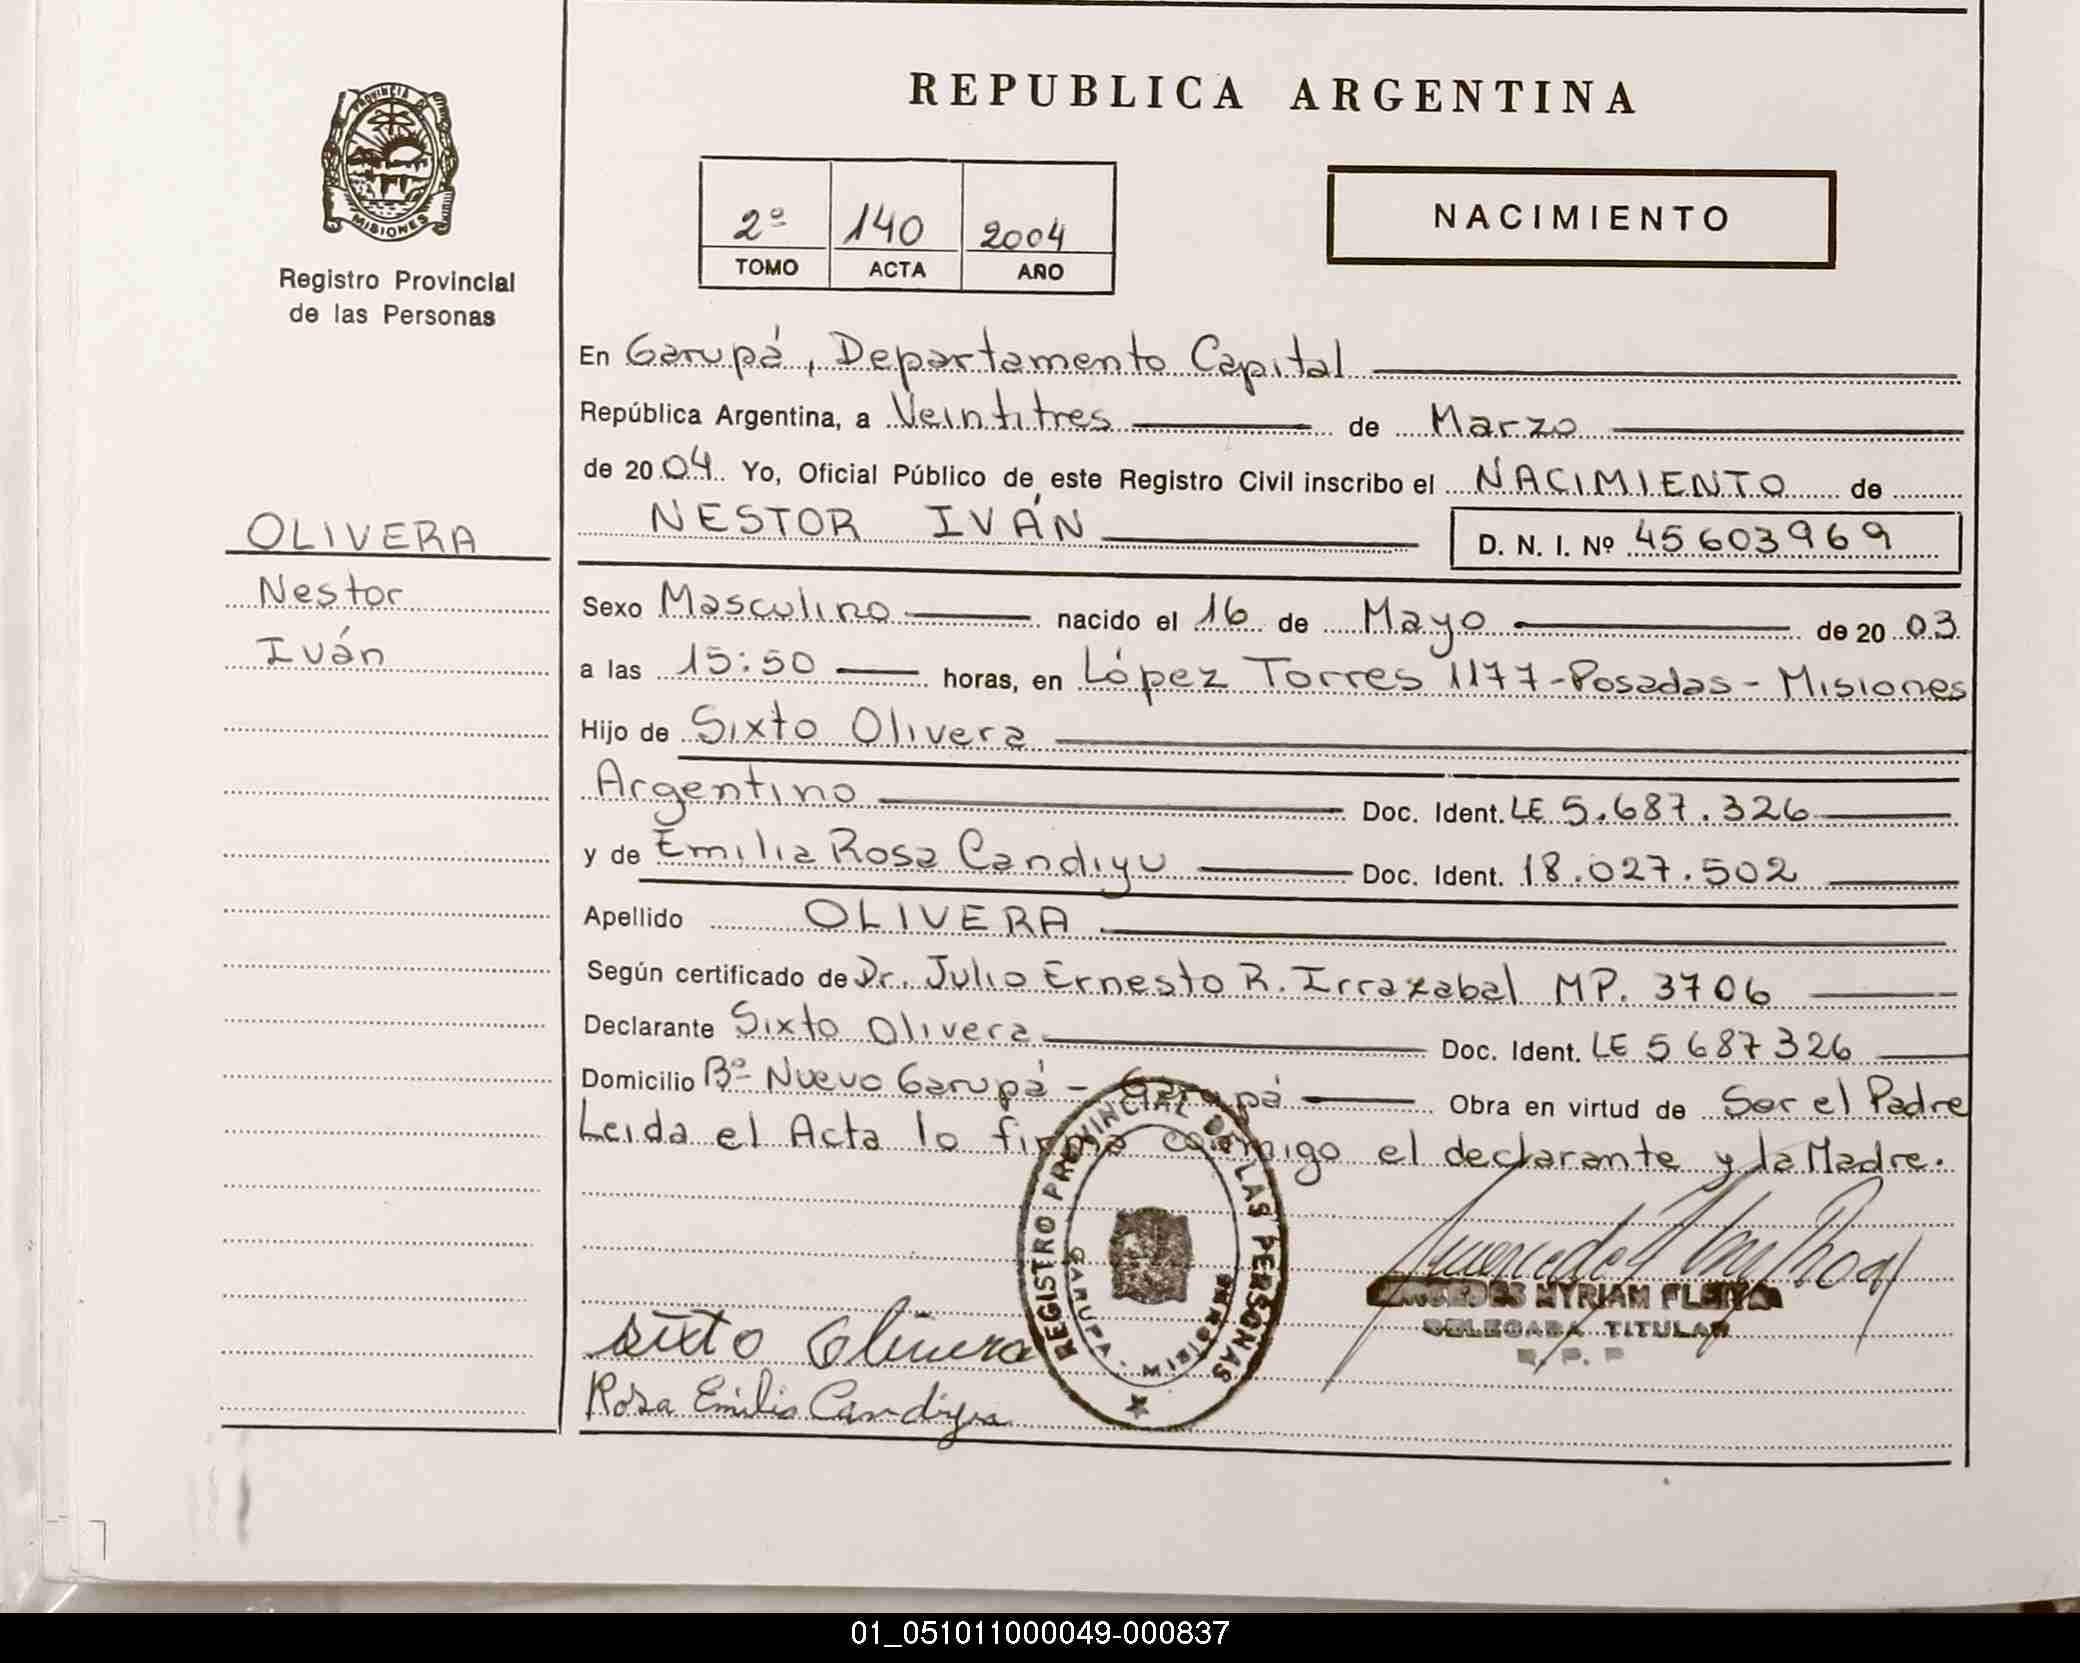 REPUBLICA ARGENTINA
PROVINCIA DE
MISIONES
Registro Provincial
de las Personas
2º 140 2004
TOMO ACTA AÑO
NACIMIENTO
En Garupá, Departamento Capital
República Argentina, a Veintitres de Marzo
de 2004. Yo, Oficial Público de este Registro Civil inscribo el NACIMIENTO de
NESTOR IVÁN D. N. I. Nº 45603969
OLIVERA
Nestor
Iván
Sexo Masculino nacido el 16 de Mayo de 2003
a las 15:50 horas, en López Torres 1177-Posadas-Misiones
Hijo de Sixto Olivera
Argentino Doc. Ident. LE 5.687.326
y de Emilia Rosa Candiyu Doc. Ident. 18.027.502
Apellido OLIVERA
Según certificado de Dr. Julio Ernesto R. Irrazabal MP. 3706
Declarante Sixto Olivera Doc. Ident. LE 5687326
Domicilio Bº Nuevo Garupá - Garupá Obra en virtud de Ser el Padre
Leida el Acta lo firma conmigo el declarante y la Madre.
REGISTRO PROVINCIAL DE LAS PERSONAS
GARUPA
MYRIAM
DELEGADA TITULAR
R. P. P
sixto Olivera
Rosa Emilia Candiyu
01_051011000049-000837